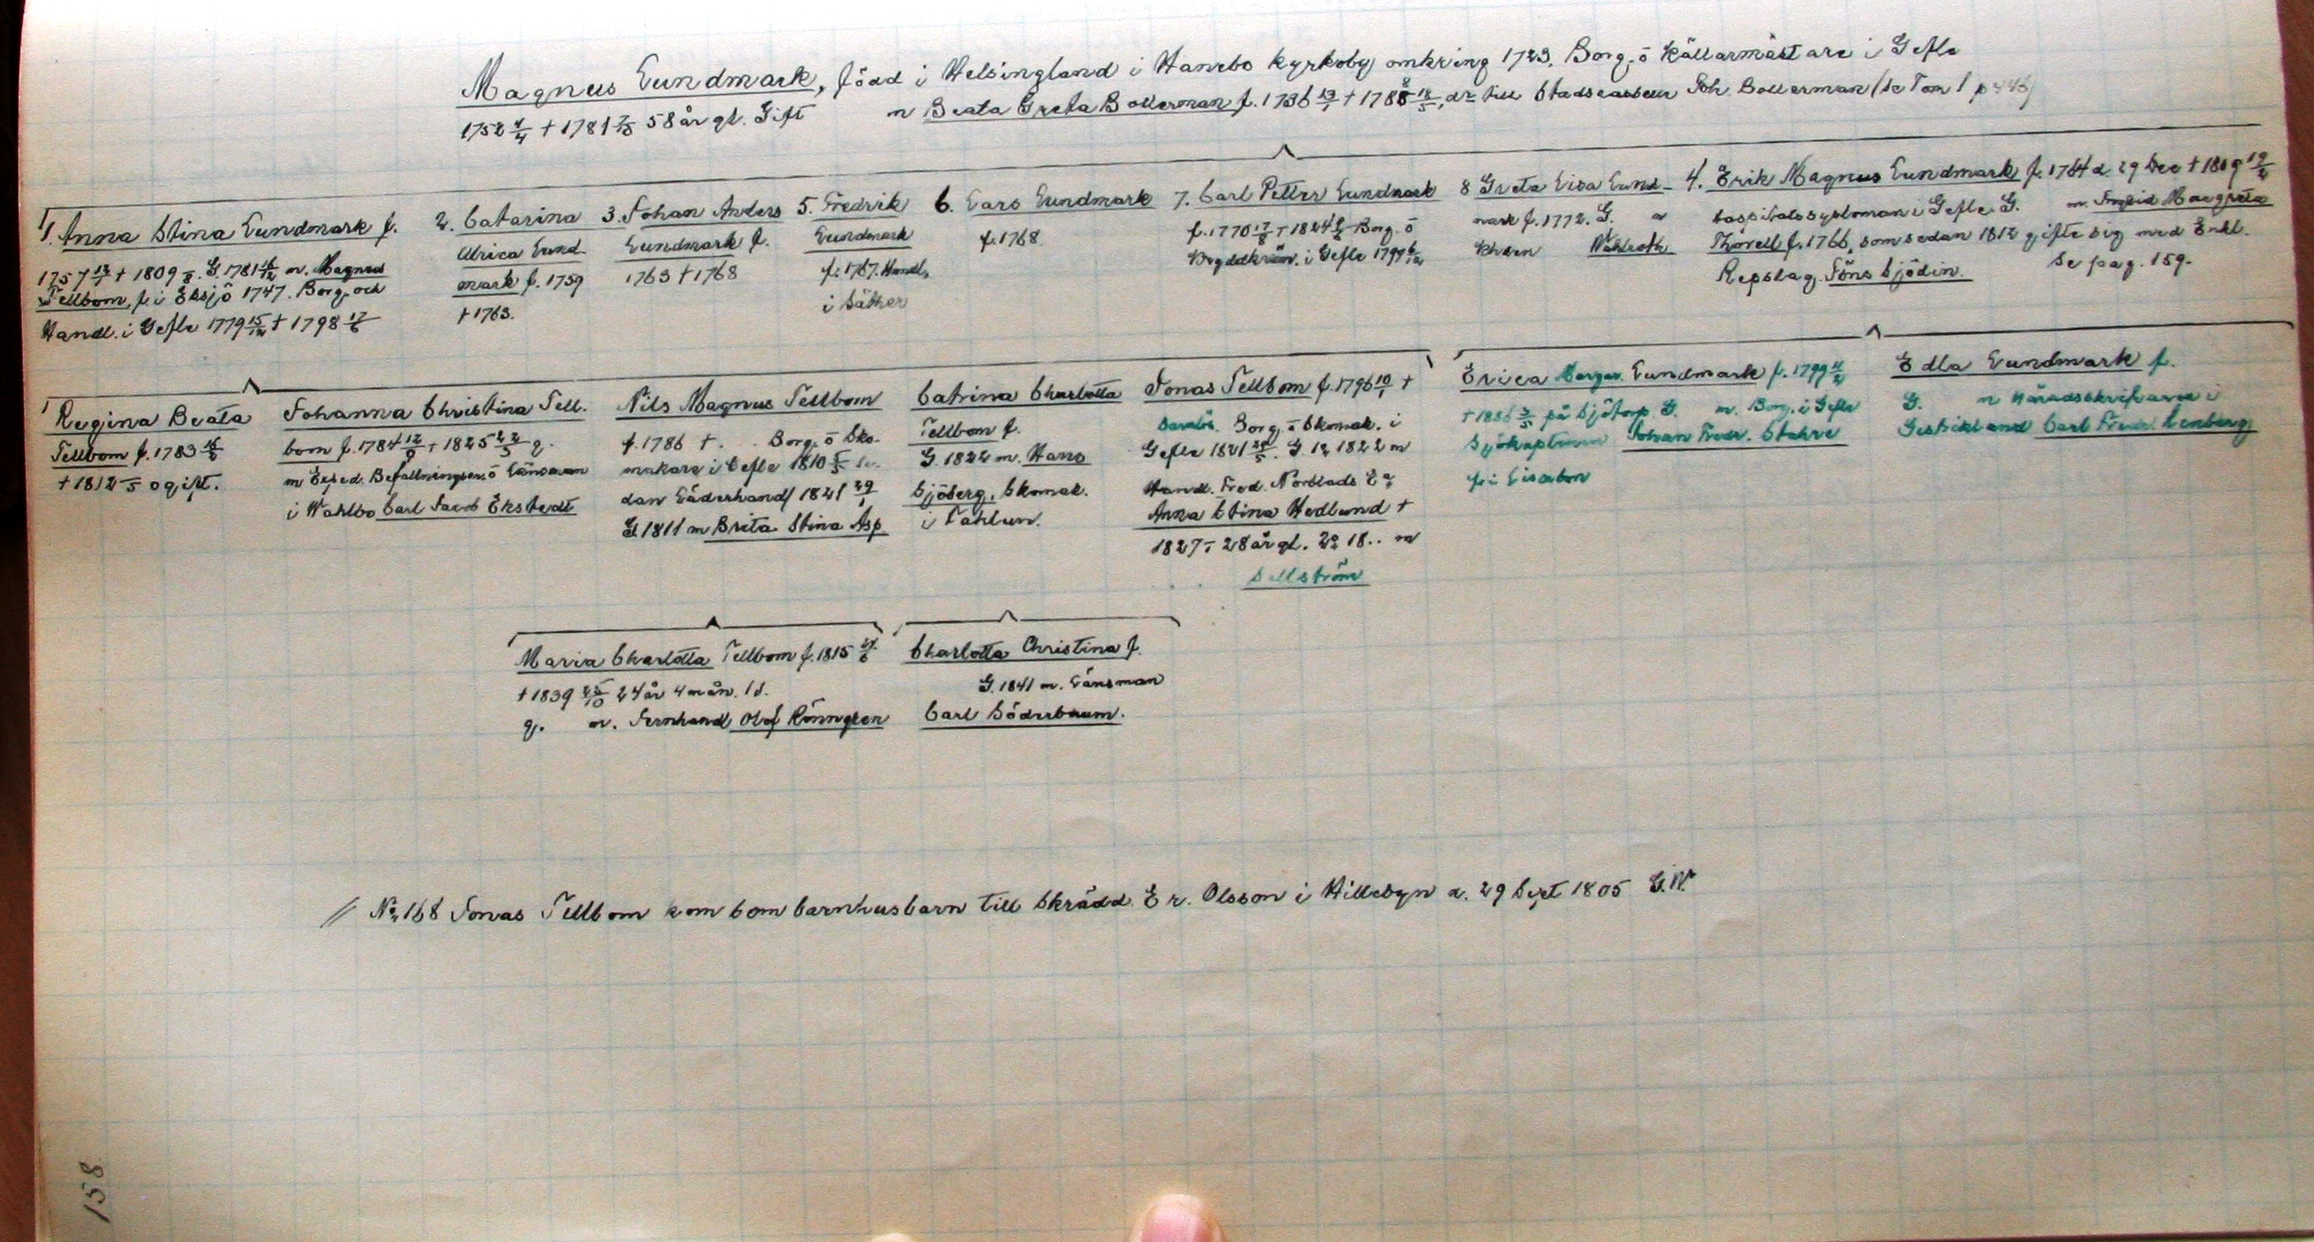 Magnus Lundmark, född i Helsingland i Hanebo kyrkoby omkring 1723. Borg. o Källarmästare i Gefle
1752 4/4 + 1781 58 år gl. Gift m Beata Greta Bollerman f. 1736 + 1788 18/5, dr till Stadscasseur Joh. Bollerman (Se Tom I p 446)
1. Anna Stina Lundmark f.
1757 + 1809. G. 1781 m. Magnus
Tellbom, f. i Eksjö 1747. Borg. och
Handl. i Gefle 1779 15/12 + 1798 17/6
2. Catarina
Ulrica Lund
mark f. 1759
+ 1763.
3. Johan Anders
Lundmark f.
1763 + 1768
5. Fredrik
Lundmark
f. 1767. Handl.
i Säther
6. Lars Lundmark
f. 1768
7. Carl Petter Lundmark
f. 1770 17/8 + 1824 Borg. o
i Gefle 1799
8 Greta Lisa Lund-
mark f. 1772. G. m
Wahlroth
4. Erik Magnus Lundmark f. 1764 d. 29 Dec + 1809 19/2
Hospitalssysloman i Gefle. G. m. Ingrid Margreta
Thorell f. 1766, som sedan 1812 gifte sig med Enkl.
Repslag. Jöns Sjödin. Se pag. 159.
Regina Beata
Tellbom f. 1783
+ 1812 ogift.
Johanna Christina Tell-
bom f. 1784 12/9 + 1825 22/5 g.
m Exped. Befallningsm. o Länsman
i Wahlbo Carl Jacob Ekstedt
Nils Magnus Tellbom
f. 1786 +. Borg. o Sko-
makare i Gefle 1810 se-
dan Läderhandl 1821 29/1
G 1811 m Brita Stina Asp
Catrina Charlotta
Tellbom f.
G. 1822 m. Hans
Sjöberg, Skomak.
i Fahlun.
Jonas Tellbom f. 1796 10/1 +
Borg. o Skomak. i
Gefle 1821. G. 1º 1822 m
Handl. Fred. Norblads Ea
Anna Stina Hedlund +
1827 28 år gl. 2º 18.. m
Sellström
Erica Margar. Lundmark f. 1799 11/2
+ 1886 3/5 på Sjötorp. G. m. Borg. i Gefle
Sjökaptenen Johan Fredr. Stahre
f. i Lissabon
Edla Lundmark f.
G. m Häradsskrifvaren i
Gestrikland Carl Fredr. Lenberg
Maria Charlotta Tellbom f. 1815
+ 1839 25/10 24 år 4 mån. 1 d.
g. m. Jernhandl Olof Rönngren
Charlotta Christina f.
G. 1841 m. Länsman
Carl Söderbaum.
// No 168 Jonas Tellbom kom som barnhusbarn till Skrädd. Er. Olsson i Hillebyn d. 29 Sept 1805 G.W.
158